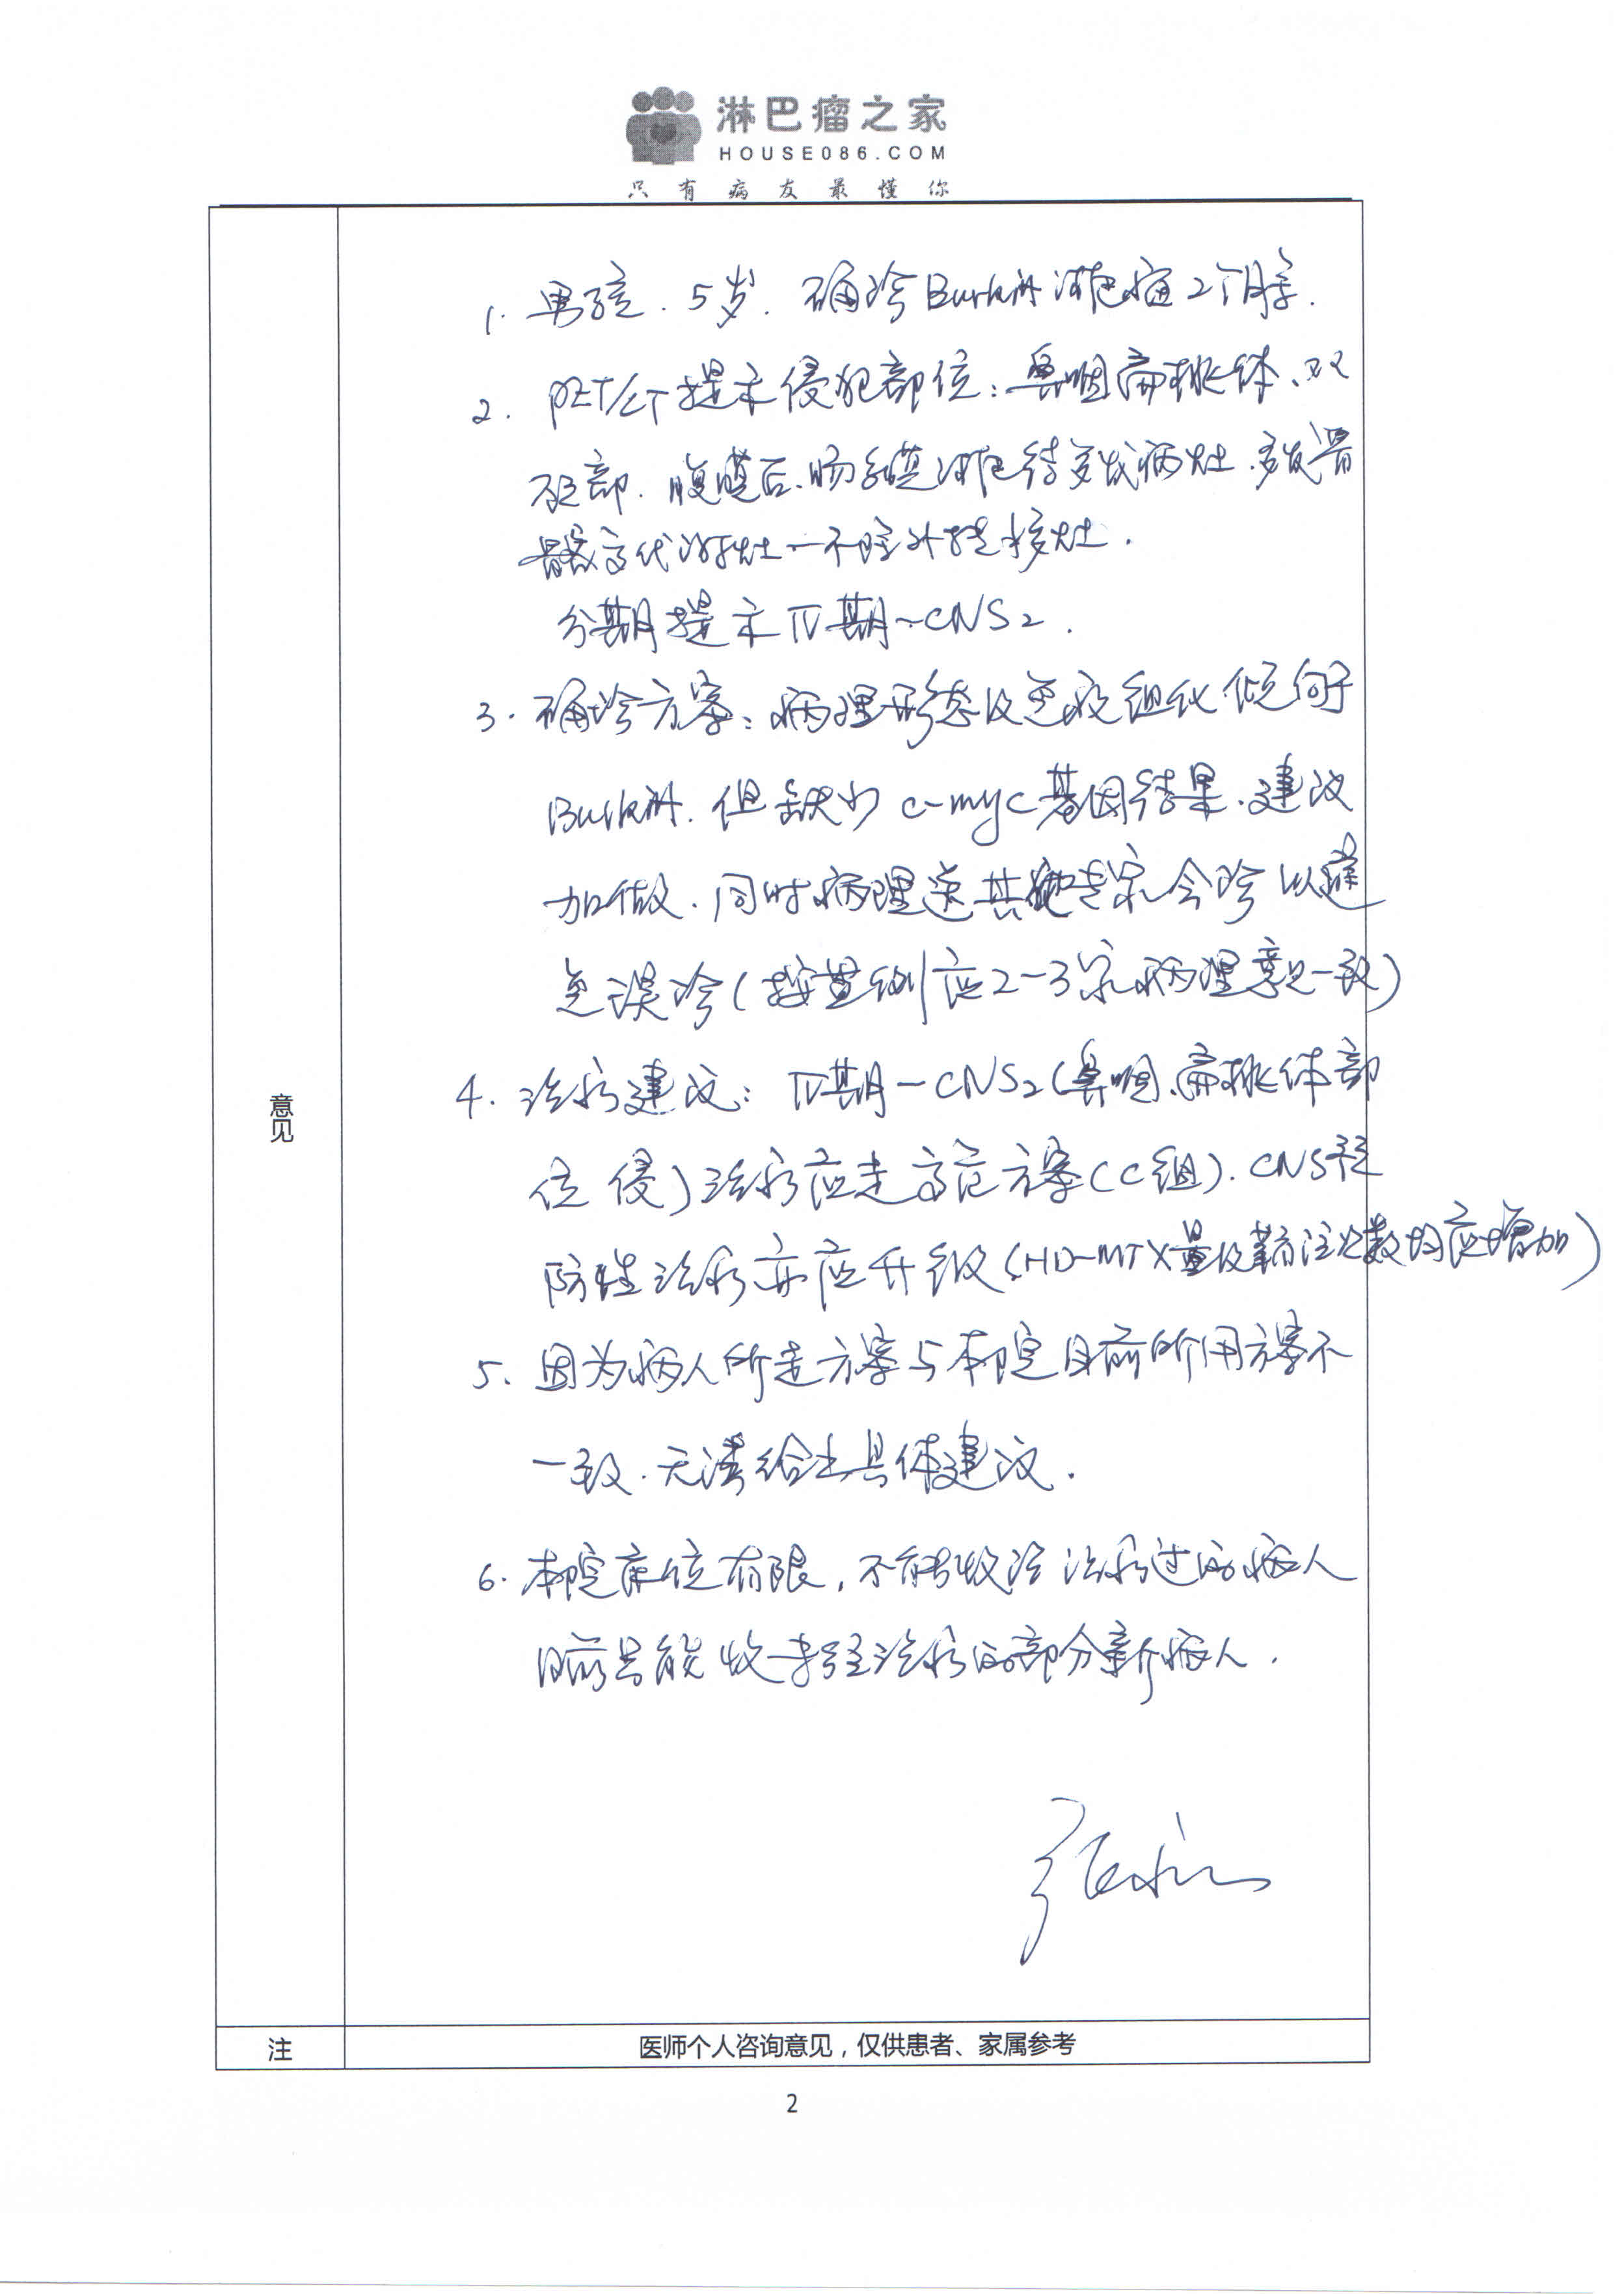 淋巴瘤之家
HOUSE086.COM
只有病友最懂你
1. 男孩. 5岁. 确诊Burkitt淋巴瘤2个月余.
2. PET/CT提示侵犯部位: 鼻咽扁桃体、双
颈部. 腹膜后、肠系膜淋巴结多发病灶. 多发骨
骼高代谢灶—不除外转移灶.
分期提示Ⅳ期~CNS2.
3. 确诊方案: 病理形态及免疫组化倾向于
Burkitt. 但缺少c-myc基因结果. 建议
加做. 同时病理送其他专家会诊以避
免误诊(按常例应2-3家病理意见一致)
4. 治疗建议: Ⅳ期-CNS2(鼻咽、扁桃体部
位侵)治疗应走高危方案(C组). CNS预
防性治疗亦应升级(HD-MTX量及鞘注次数均应增加)
5. 因为病人所走方案与本院目前所用方案不
一致. 无法给出具体建议.
6. 本院床位有限, 不能收治治疗过的病人
目前只能收未经治疗的部分新病人.
意见
注
医师个人咨询意见，仅供患者、家属参考
2